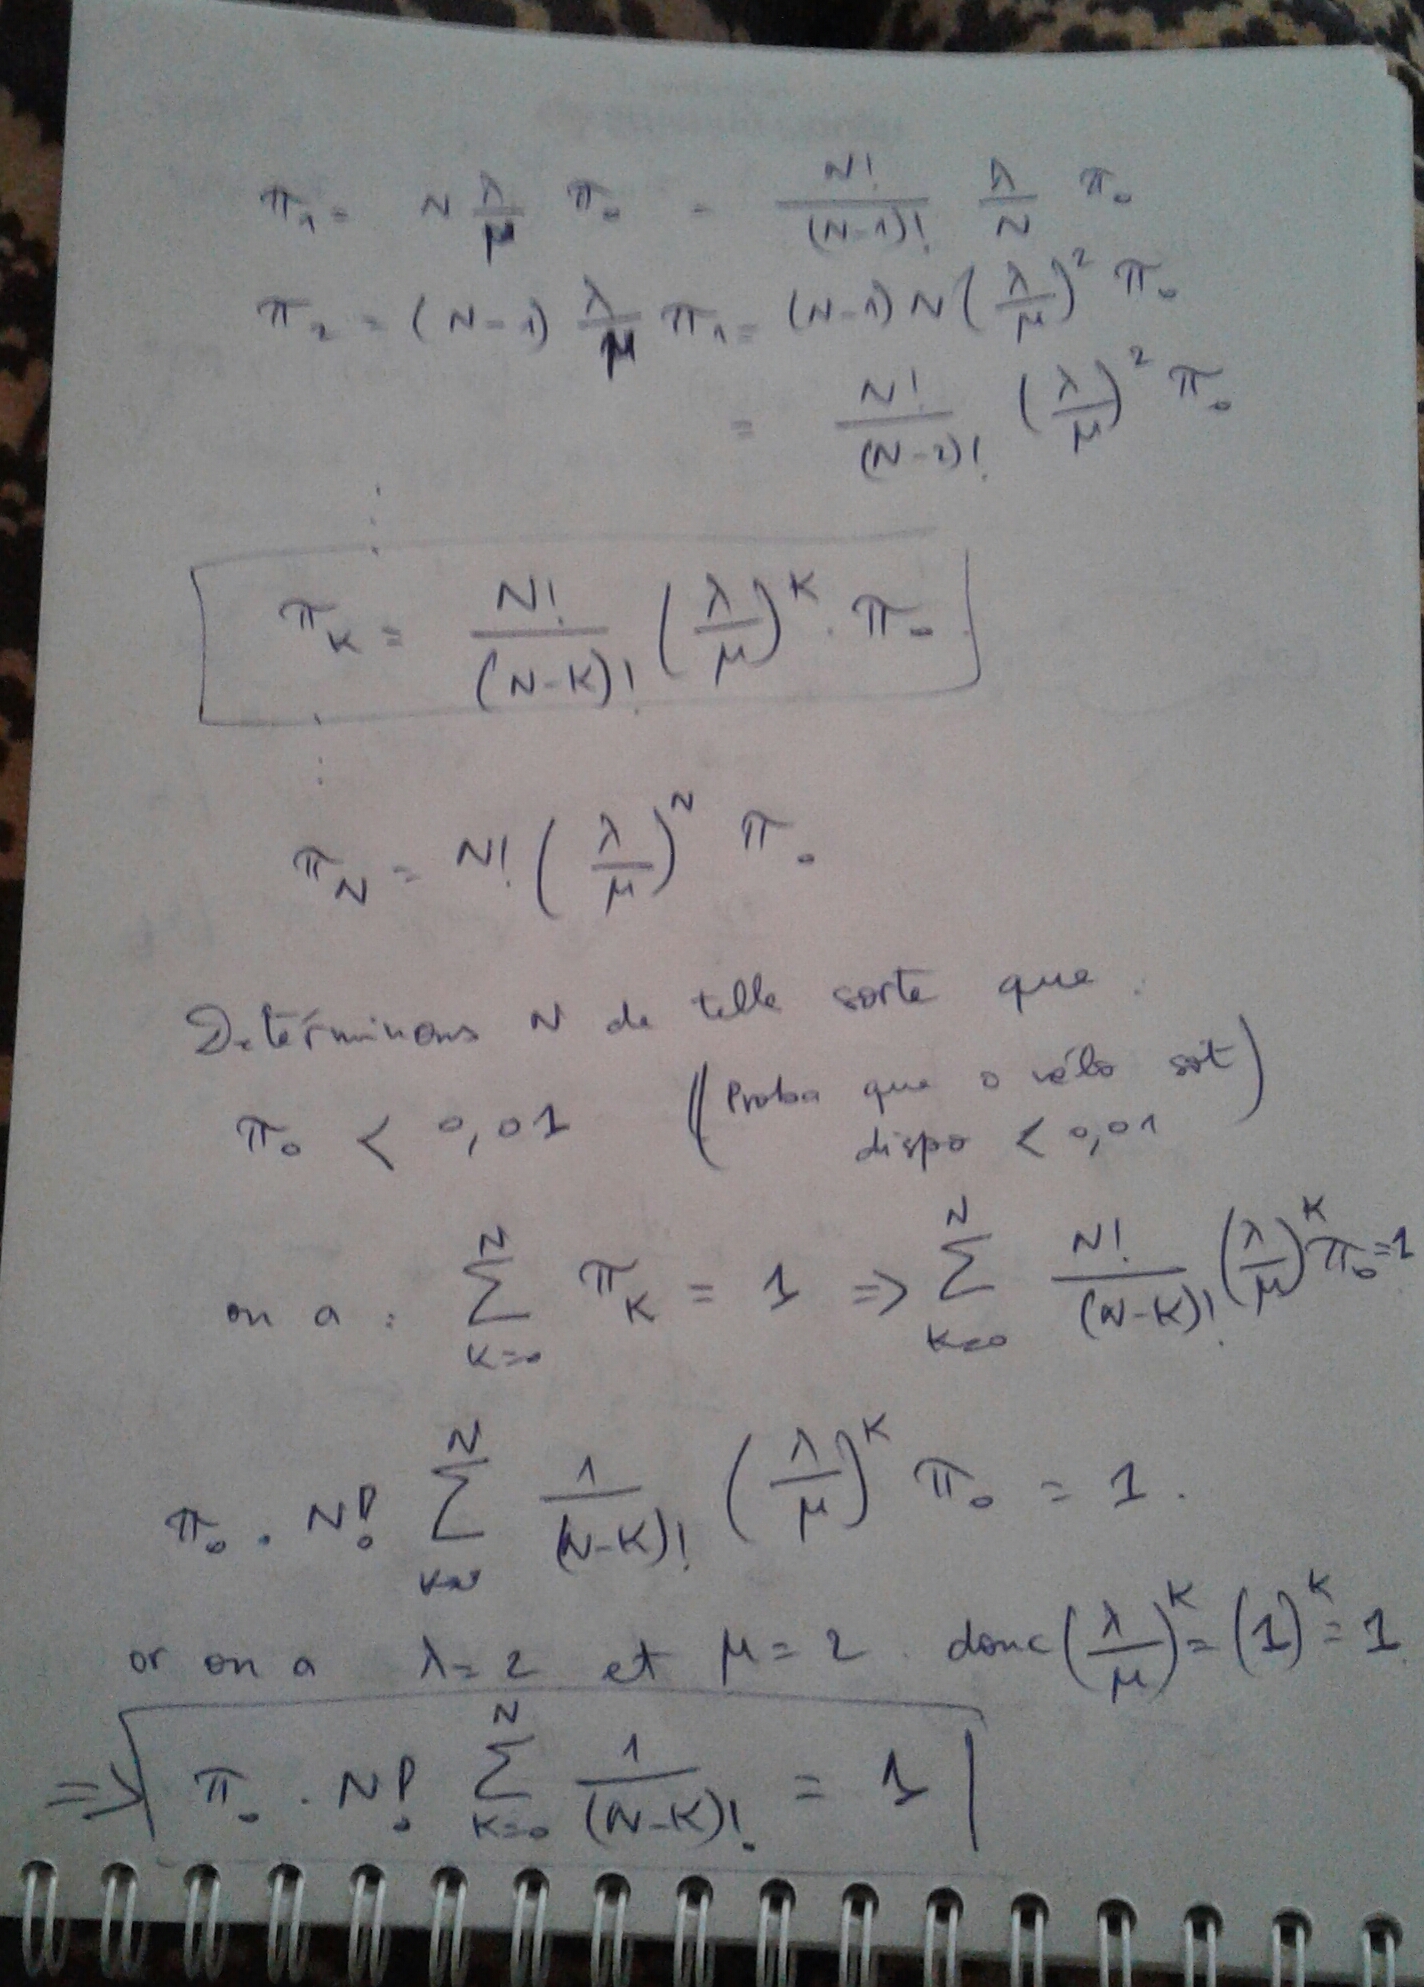 π₁ = N λ/μ π₀ = N!/(N-1)! λ/N π₀
π₂ = (N-1) λ/μ π₁ = (N-1) N (λ/μ)² π₀
= N!/(N-2)! (λ/μ)² π₀
⋮
π_K = N!/(N-K)! (λ/μ)^K . π₀
⋮
π_N = N! (λ/μ)^N π₀
Déterminons N de telle sorte que :
π₀ < 0,01 (Proba que 0 vélo soit
dispo < 0,01)
on a : ∑_{K=0}^{N} π_K = 1 => ∑_{K=0}^{N} N!/(N-K)! (λ/μ)^K π₀ = 1
π₀ . N! ∑_{K=0}^{N} 1/(N-K)! (λ/μ)^K π₀ = 1 .
or on a λ = 2 et μ = 2 . donc (λ/μ)^K = (1)^K = 1
=> π₀ . N! ∑_{K=0}^{N} 1/(N-K)! = 1